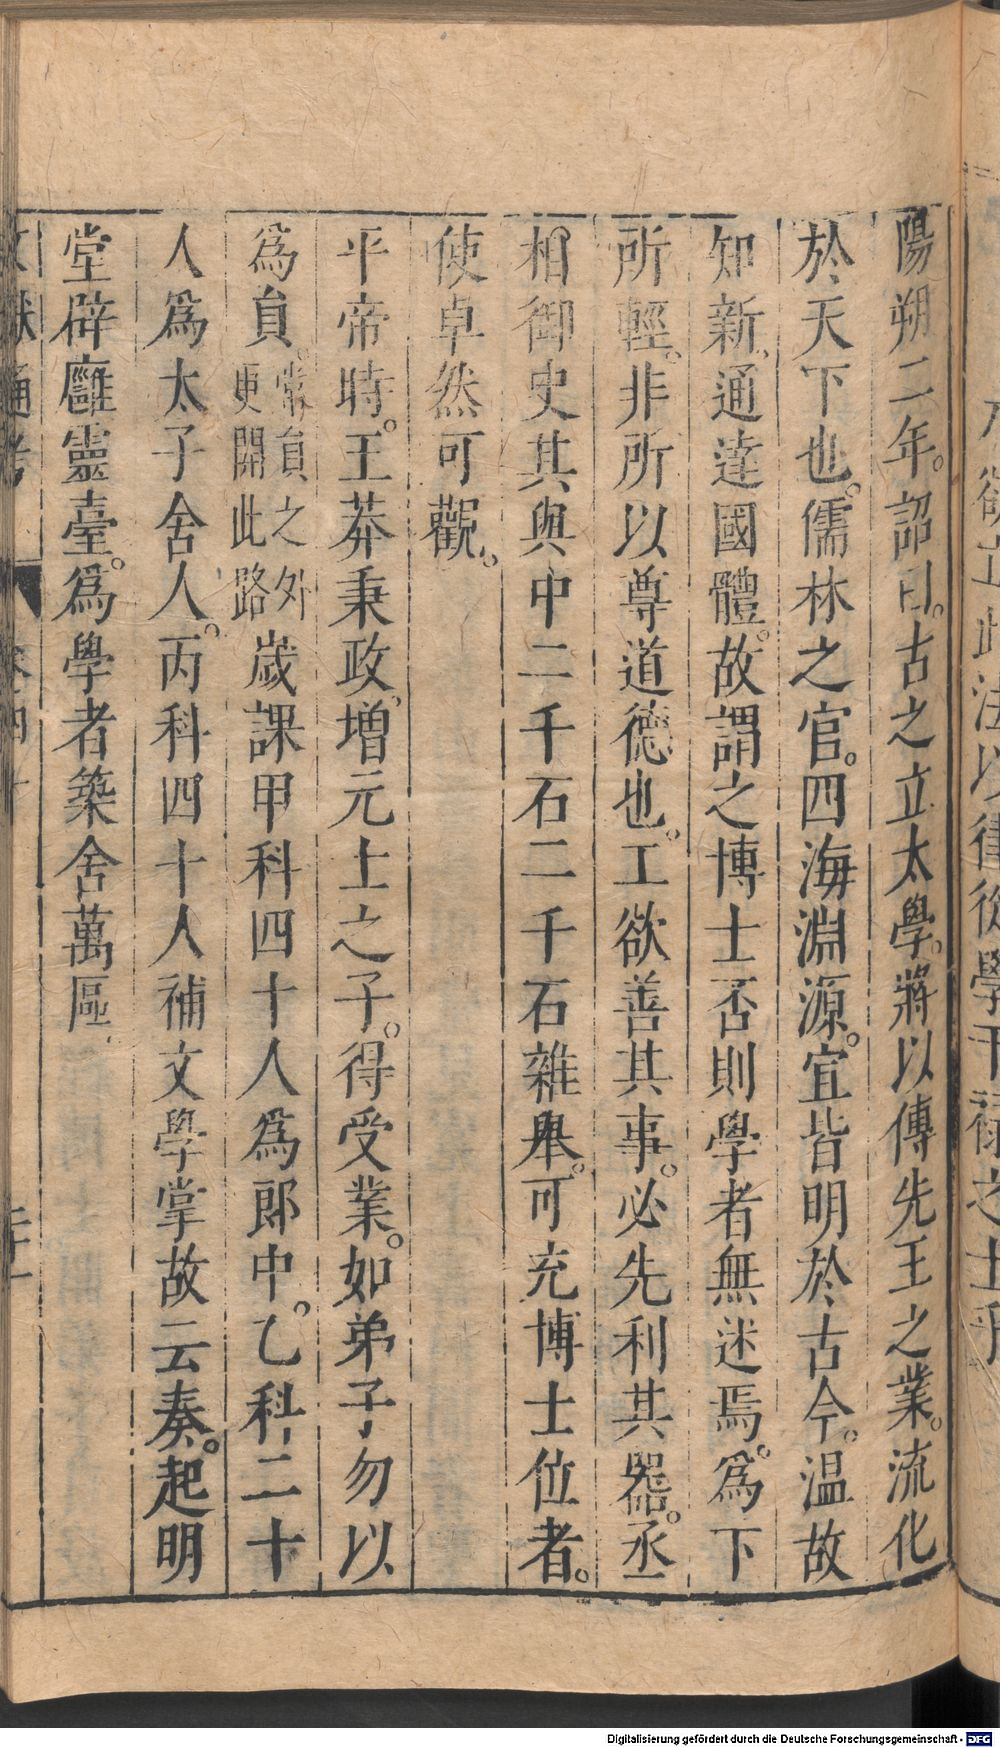 陽朔二年。詔曰。古之立太學。將以傳先王之業。流化
於天下也。儒林之官。四海淵源。宜皆明於古今。温故
知新、通達國體。故謂之博士否則學者無述焉。爲下
所輕。非所以尊道德也。工欲善其事。必先利其器。丞
相御史其與中二千石二千石雜舉。可充博士位者。
使卓然可觀。
平帝時。王莽秉政、增元士之子。得受業。如弟子勿以
爲員。常員之外更開此路歲課甲科四十人爲郎中。乙科二十
人爲太子舍人。丙科四十人補文學掌故云奏。起明
堂辟廱靈臺。爲學者築舍萬區、
文獻通考 卷四十
Digitalisierung gefördert durch die Deutsche Forschungsgemeinschaft - DFG